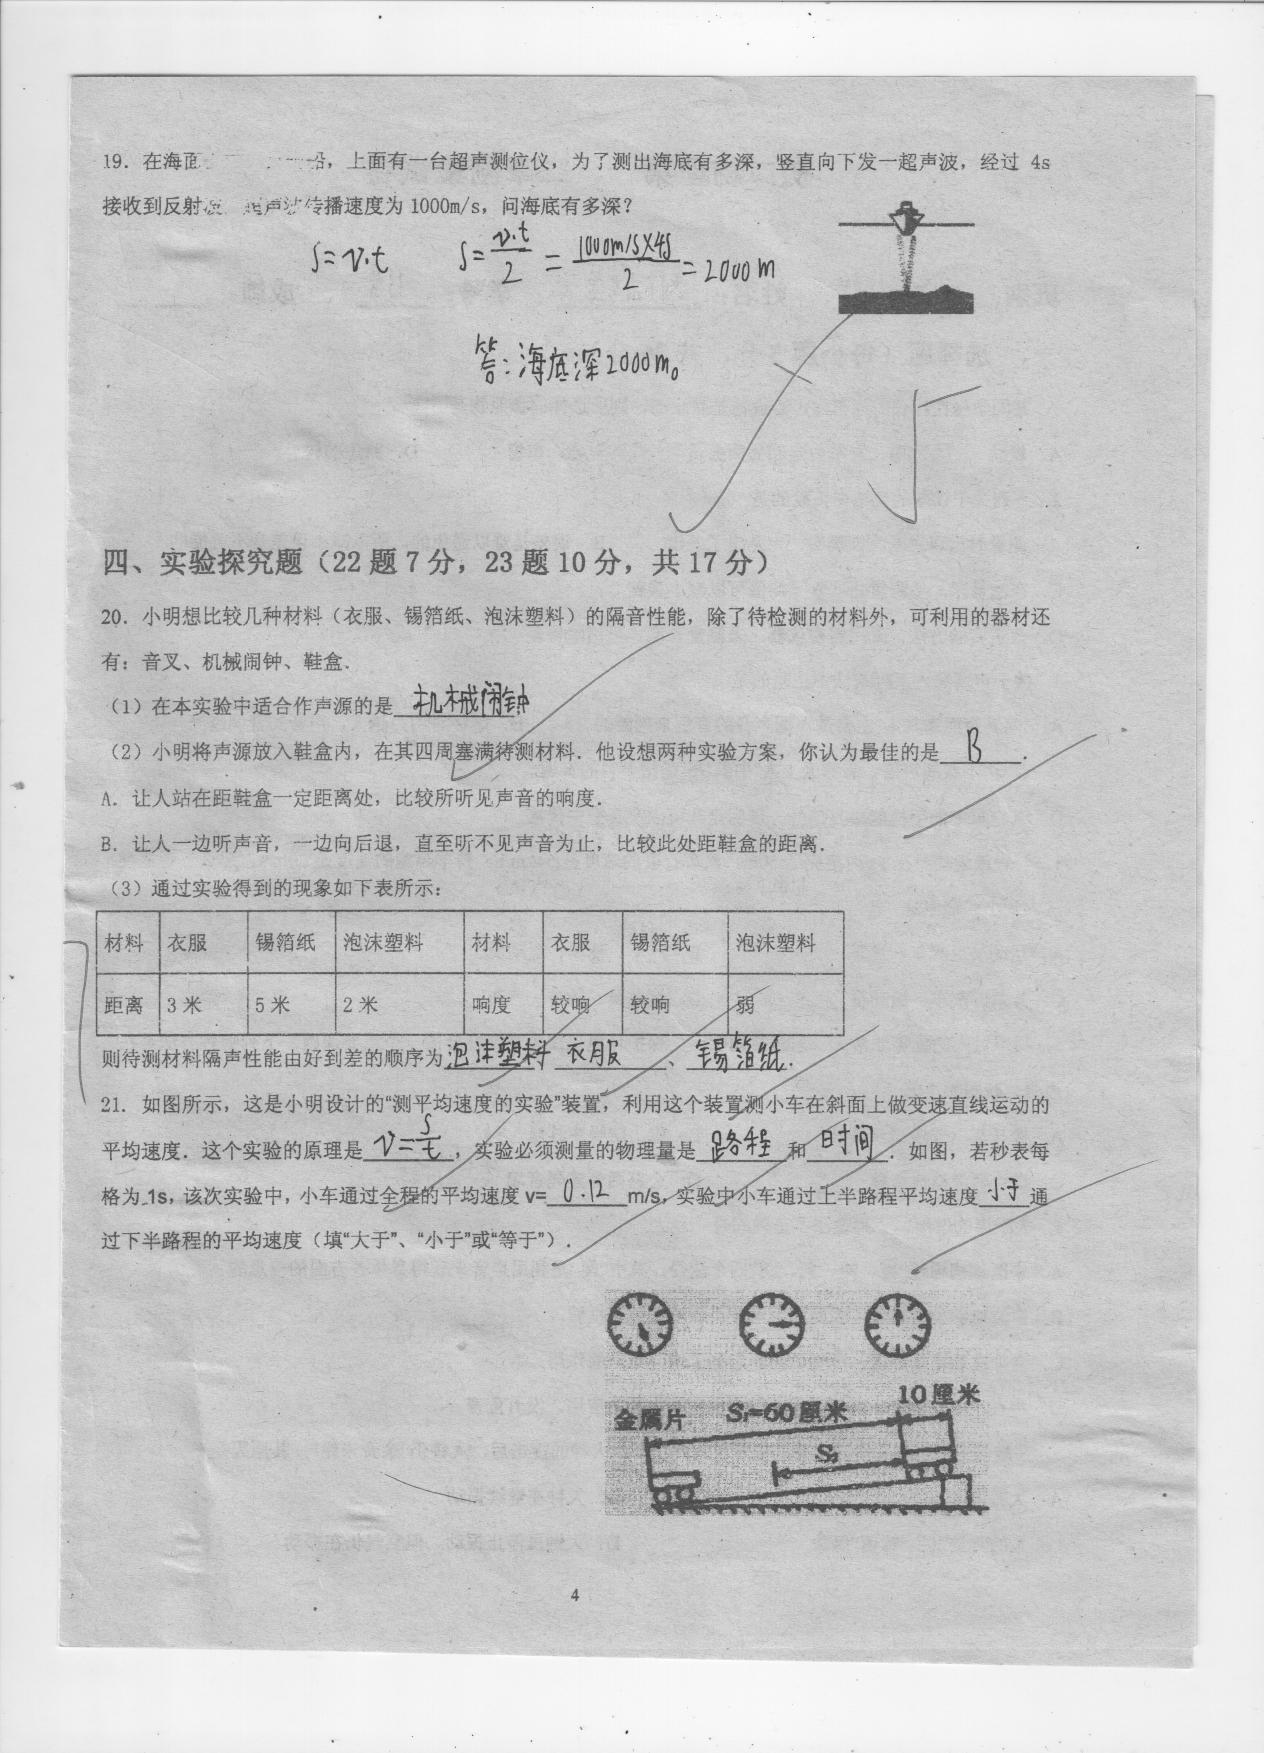 19. 在海面 船，上面有一台超声测位仪，为了测出海底有多深，竖直向下发一超声波，经过 4s
接收到反射波 超声波传播速度为 1000m/s，问海底有多深？
S=v·t S=v·t/2 =1000m/s×4s/2 =2000m
答：海底深2000m。
四、实验探究题（22题7分，23题10分，共17分）
20. 小明想比较几种材料（衣服、锡箔纸、泡沫塑料）的隔音性能，除了待检测的材料外，可利用的器材还
有：音叉、机械闹钟、鞋盒.
（1）在本实验中适合作声源的是 机械闹钟
（2）小明将声源放入鞋盒内，在其四周塞满待测材料. 他设想两种实验方案，你认为最佳的是 B .
A. 让人站在距鞋盒一定距离处，比较所听见声音的响度.
B. 让人一边听声音，一边向后退，直至听不见声音为止，比较此处距鞋盒的距离.
（3）通过实验得到的现象如下表所示：
材料 衣服 锡箔纸 泡沫塑料 材料 衣服 锡箔纸 泡沫塑料
距离 3米 5米 2米 响度 较响 较响 弱
则待测材料隔声性能由好到差的顺序为 泡沫塑料 衣服 、 锡箔纸 .
21. 如图所示，这是小明设计的“测平均速度的实验”装置，利用这个装置测小车在斜面上做变速直线运动的
平均速度. 这个实验的原理是 v=s/t ，实验必须测量的物理量是 路程 和 时间 . 如图，若秒表每
格为 1s，该次实验中，小车通过全程的平均速度 v= 0.12 m/s，实验中小车通过上半路程平均速度 小于 通
过下半路程的平均速度（填“大于”、“小于”或“等于”）.
10厘米
金属片 S₁=60厘米
S₂
4